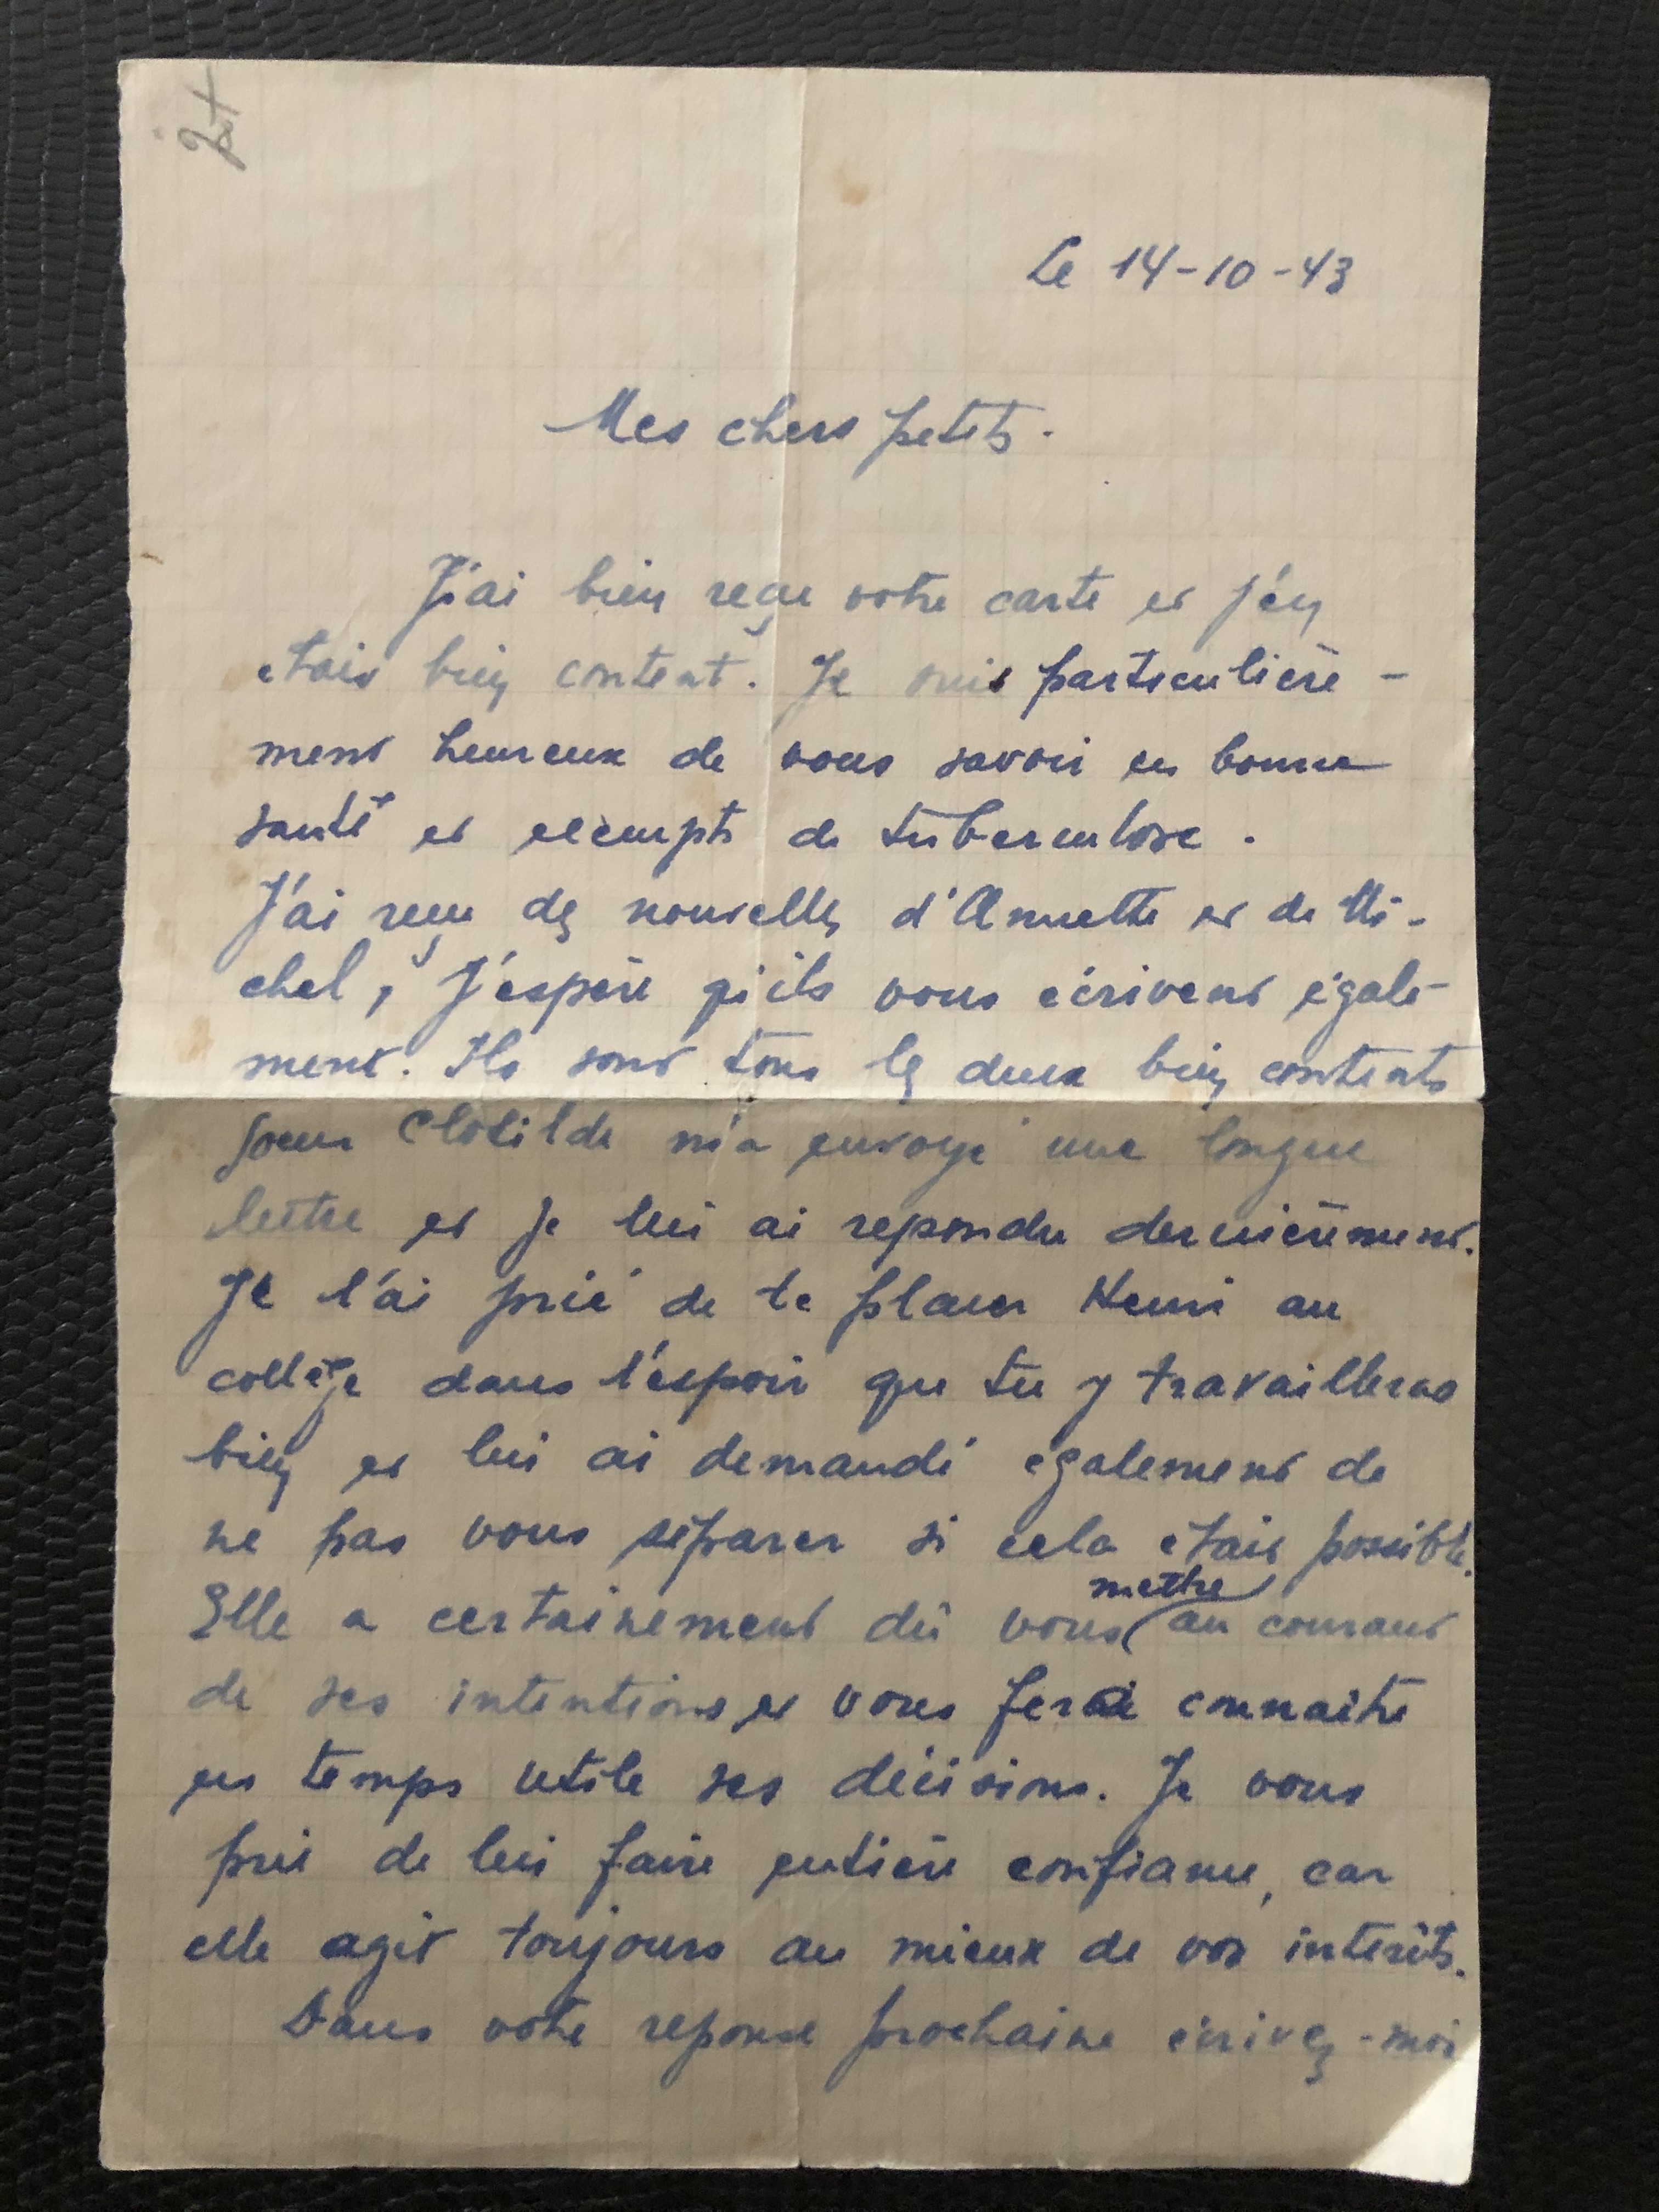 Le 14-10-43
Mes chers petits.
J'ai bien reçu votre carte et j'en
etais bien content. Je suis particulière-
ment heureux de vous savoir en bonne
santé et exempts de tuberculose.
J'ai reçu des nouvelles d'Annette et de Mi-
chel, J'espère qu'ils vous écrivent égale-
ment. Ils sont tous les deux bien contents
soeur Clotilde m'a envoyé une longue
lettre et je lui ai repondu dernièrement.
Je l'ai prié de te placer Henri au
collège dans l'éspoir que tu y travailleras
bien et lui ai demandé également de
ne pas vous séparer si cela etait possible.
Elle a certainement dû vous mettre au courant
de ses intentions et vous fera connaitre
en temps utile ses décisions. Je vous
prie de lui faire entière confiance, car
elle agit toujours au mieux de vos interêts.
Dans votre reponse prochaine écrivez-moi